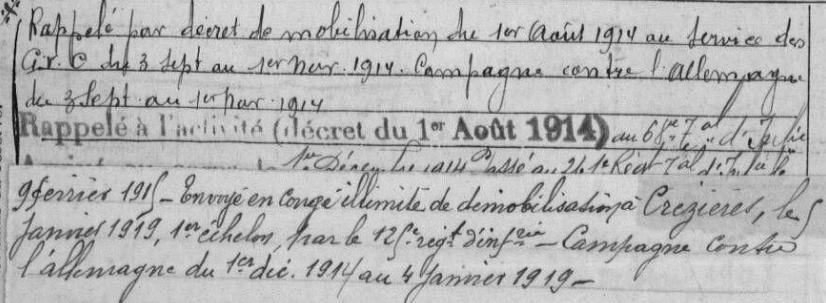 Rappelé par décret de mobilisation du 1er Août 1914 au service des
G.V.C du 3 Sept au 1er nov. 1914. Campagne contre l'allemagne
du 3 Sept. au 1er nov. 1914
Rappelé à l'activité (décret du 1er Août 1914) au 68e Rt d'Inf
1er Décembre 1914 Passé au
9 février 1915 - Envoyé en congé illimité de démobilisation à Crezières, le 5
Janvier 1919, 1er échelon, par le 125e régt d'inferie - Campagne contre
l'allemagne du 1er dec. 1914 au 4 Janvier 1919 -